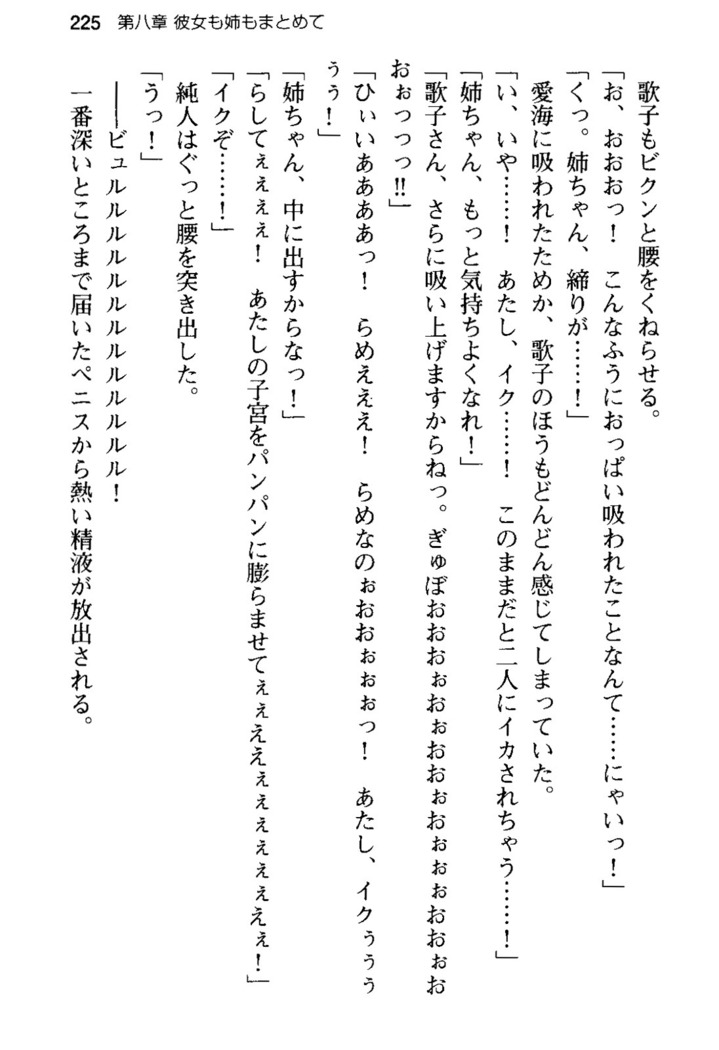 225 第八章 彼女も姉もまとめて
歌子もビクンと腰をくねらせる。
「お、おおおっ！　こんなふうにおっぱい吸われたことなんて……にゃいっ！」
「くっ。姉ちゃん、締りが……！」
愛海に吸われたためか、歌子のほうもどんどん感じてしまっていた。
「い、いや……！　あたし、イク……！　このままだと二人にイカされちゃう……！」
「姉ちゃん、もっと気持ちよくなれ！」
「歌子さん、さらに吸い上げますからねっ。ぎゅぼおおおぉおぉおおぉおぉぉおおぉお
おぉっっっ!!」
「ひぃいああああっ！　らめえええ！　らめなのぉおおぉぉぉっ！　あたし、イクぅぅぅ
ぅぅ！」
「姉ちゃん、中に出すからなっ！」
「らしてぇぇぇぇ！　あたしの子宮をパンパンに膨らませてぇぇええぇぇぇぇぇぇえぇ！」
「イクぞ……！」
純人はぐっと腰を突き出した。
「うっ！」
――ビュルルルルルルルルルルルルル！
一番深いところまで届いたペニスから熱い精液が放出される。